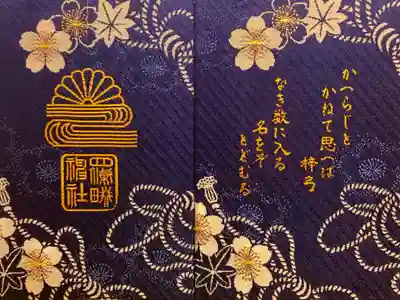 かへらじと
かねて思へば
梓弓
なき数に入る
名をぞ
とどむる
四條畷
神社